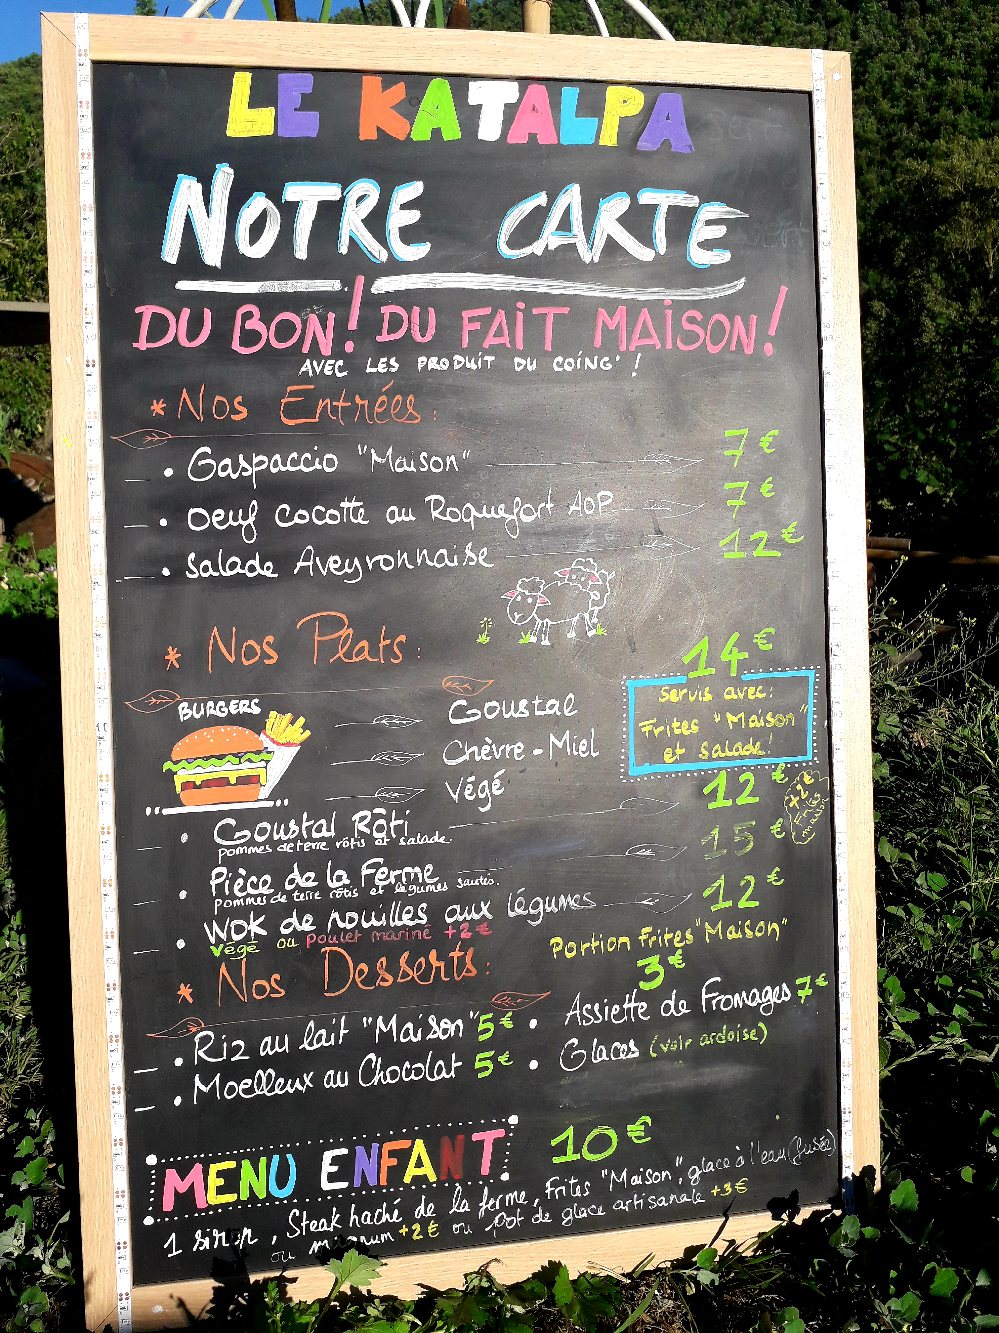 LE KATALPA
NOTRE CARTE
DU BON! DU FAIT MAISON!
AVEC LES PRODUIT DU COING' !
* Nos Entrées:
• Gaspaccio "Maison" 7€
• Oeuf cocotte au Roquefort AOP 7€
• Salade Aveyronnaise 12€
* Nos Plats:
14€
BURGERS
Goustal
Chèvre-Miel
Végé
Servis avec:
Frites "Maison"
et salade!
• Goustal Rôti 12€
+2€
Frites
maison
pommes de terre rôtis et salade.
• Pièce de la Ferme 15€
pommes de terre rôtis et légumes sautés.
• Wok de nouilles aux légumes 12€
Végé ou poulet mariné +2€
Portion frites "Maison"
3€
* Nos Desserts:
• Riz au lait "Maison" 5€
• Moelleux au Chocolat 5€
• Assiette de Fromages 7€
• Glaces (voir ardoise)
MENU ENFANT 10€
1 sirop, Steak haché de la ferme, Frites "Maison", glace à l'eau (fusée)
ou magnum +2€ ou Pot de glace artisanale +3€